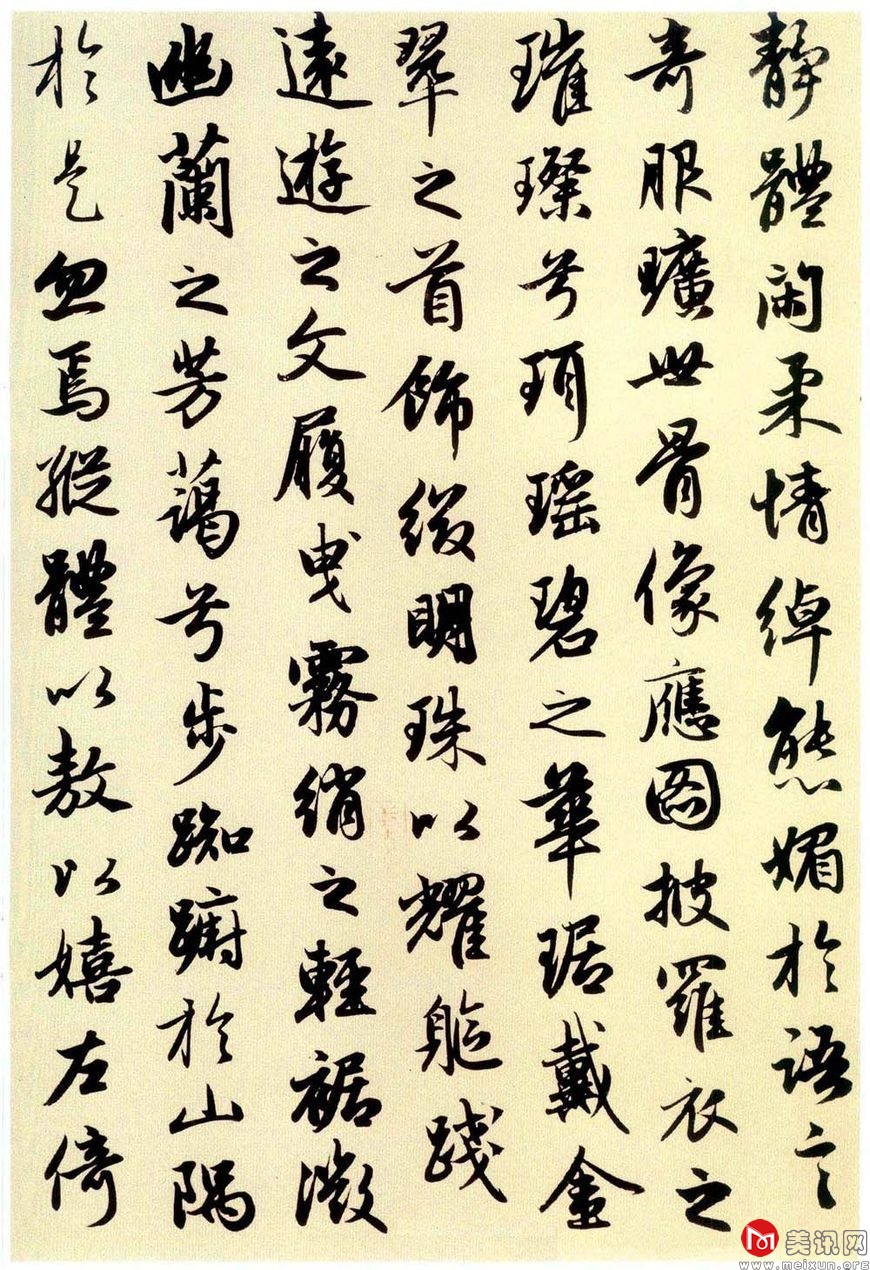 靜體閑柔情綽態媚於語言
奇服曠世骨像應圖披羅衣之
璀璨兮珥瑶碧之華琚戴金
翠之首飾綴明珠以耀軀踐
遠遊之文履曳霧綃之輕裾微
幽蘭之芳藹兮步踟躕於山隅
於是忽焉縱體以敖以嬉左倚
美讯网
www.meixun.org